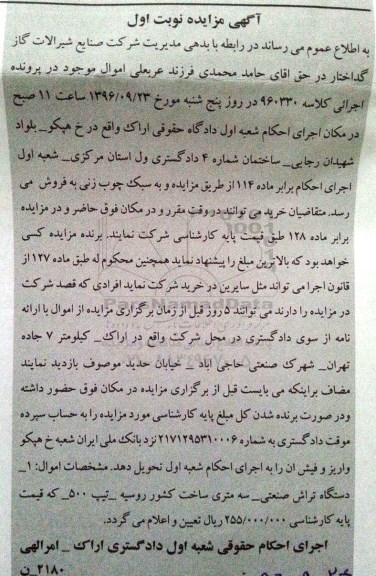 آگهی مزایده نوبت اول
به اطلاع عموم می رساند در رابطه با بدهی مدیریت شرکت صنایع شیرالات گاز
گداختار در حق اقای حامد محمدی فرزند عربعلی اموال موجود در پرونده
اجرائی کلاسه ۹۶۰۳۳۰ در روز پنج شنبه مورخ ۱۳۹۶/۰۹/۲۳ ساعت ۱۱ صبح
در مکان اجرای احکام شعبه اول دادگاه حقوقی اراک واقع در خ هپکو_ بلواد
شهیدان رجایی_ ساختمان شماره ۴ دادگستری ول استان مرکزی_ شعبه اول
اجرای احکام برابر ماده ۱۱۴ از طریق مزایده و به سبک چوب زنی به فروش می
رسد. متقاضیان خرید می توانند در وقت مقرر و در مکان فوق حاضر و در مزایده
برابر ماده ۱۲۸ طبق قیمت پایه کارشناسی شرکت نمایند. برنده مزایده کسی
خواهد بود که بالاترین مبلغ را پیشنهاد نماید همچنین محکوم له طبق ماده ۱۲۷ از
قانون اجرا می تواند مثل سایرین در خرید شرکت نماید افرادی که قصد شرکت
در مزایده را دارند می توانند ۵ روز قبل از زمان برگزاری مزایده از اموال با ارائه
نامه از سوی دادگستری در محل شرکت واقع در اراک_ کیلومتر ۷ جاده
تهران_ شهرک صنعتی حاجی اباد _ خیابان حدید موصوف بازدید نمایند
مضاف براینکه می بایست قبل از برگزاری مزایده در مکان فوق حضور داشته
ودر صورت برنده شدن کل مبلغ پایه کارشناسی مورد مزایده را به حساب سپرده
موقت دادگستری به شماره ۲۱۷۱۲۹۵۳۱۰۰۰۶ نزد بانک ملی ایران شعبه خ هپکو
واریز و فیش ان را به اجرای احکام شعبه اول تحویل دهد. مشخصات اموال: ۱_
دستگاه تراش صنعتی_ سه متری ساخت کشور روسیه _تیپ ۵۰۰_ که قیمت
پایه کارشناسی ۲۵۵/۰۰۰/۰۰۰ ریال تعیین و اعلام می گردد.
اجرای احکام حقوقی شعبه اول دادگستری اراک _ امرالهی
۲۱۸۰_ن
ParsNamadData